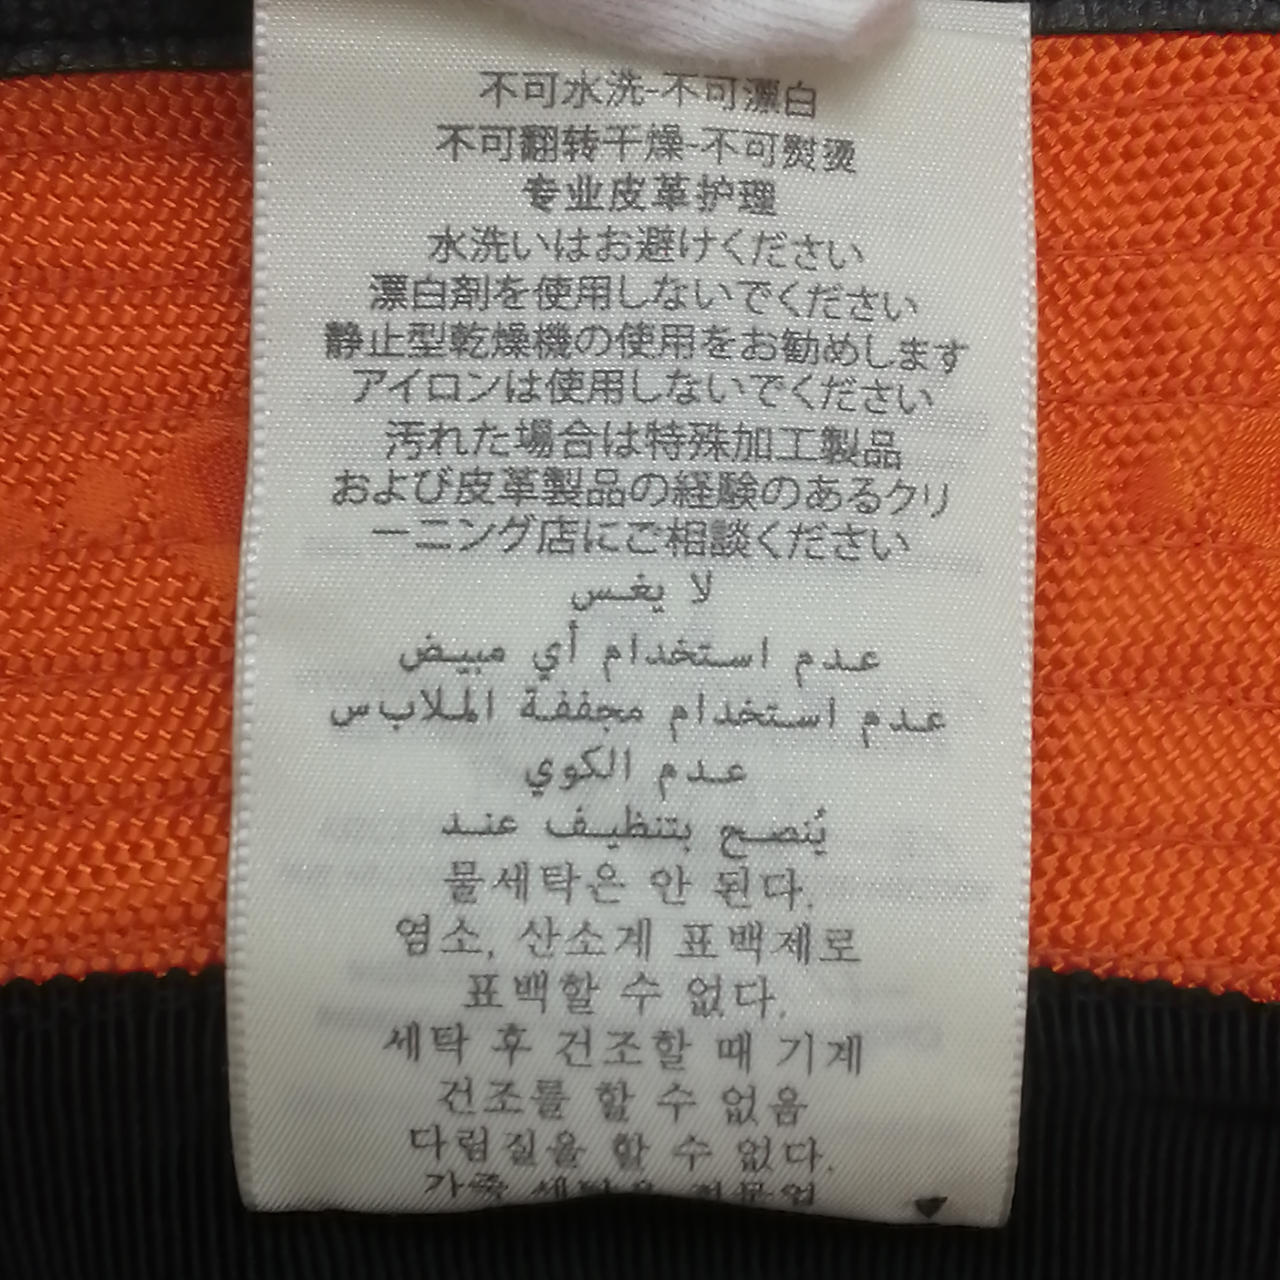 不可水洗-不可漂白
不可翻转干燥-不可熨烫
专业皮革护理
水洗いはお避けください
漂白剤を使用しないでください
静止型乾燥機の使用をお勧めします
アイロンは使用しないでください
汚れた場合は特殊加工製品
および皮革製品の経験のあるクリ
ーニング店にご相談ください
لا يغس
عدم استخدام أي مبيض
عدم استخدام مجففة الملاب س
عدم الكوي
يُنصح بتنظيف عند
물세탁은 안 된다.
염소, 산소계 표백제로
표백할 수 없다.
세탁 후 건조할 때 기계
건조를 할 수 없음
다림질을 할 수 없다.
가죽 세탁은 전문업